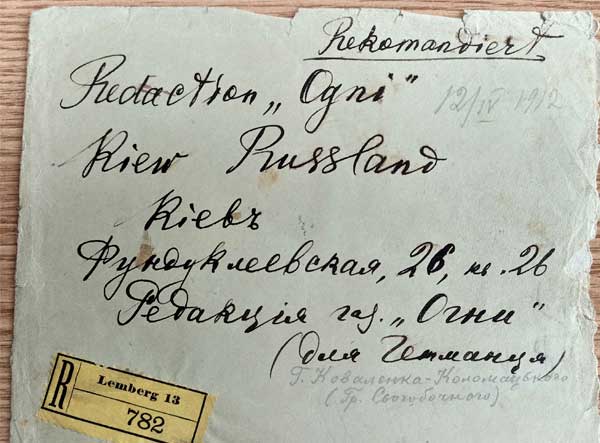 Rekomandiert
Redaction „Ogni"
12/IV 1912
Kiew Russland
Кіевъ
Фундуклеевская, 26, кв. 26
Редакція газ. „Огни"
(для Гетманця)
Г. Коваленка-Коломацького
(Гр. Сьогобочного)
R
Lemberg 13
782